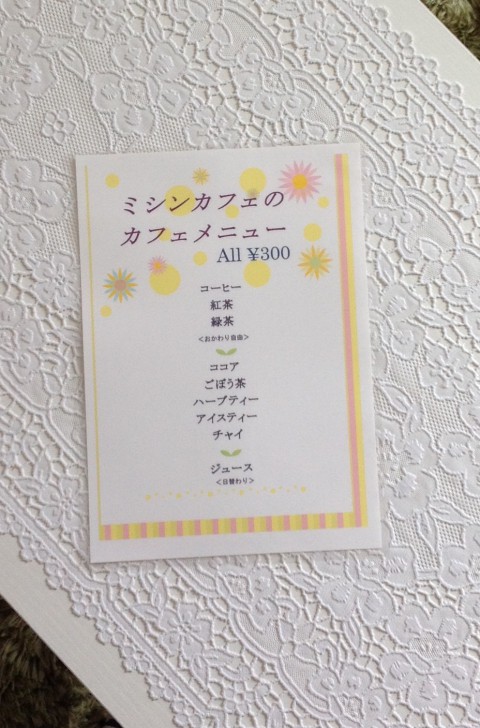 ミシンカフェの
カフェメニュー
All ¥300
コーヒー
紅茶
緑茶
<おかわり自由>
ココア
ごぼう茶
ハーブティー
アイスティー
チャイ
ジュース
<日替わり>